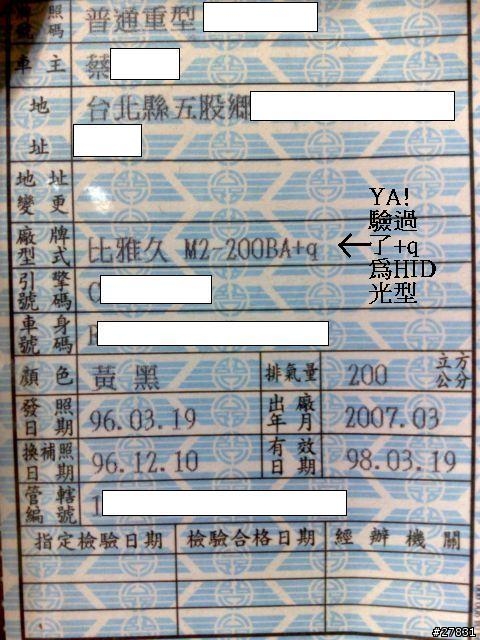 牌照號碼 普通重型
車主 蔡
地址 台北縣五股鄉
地址變更
廠牌型式 比雅久 M2-200BA+q
YA!
驗過
了+q
為HID
光型
引擎號碼
車身號碼
顏色 黃黑 排氣量 200 立方公分
發照日期 96.03.19 出廠年月 2007.03
換補照日期 96.12.10 有效日期 98.03.19
管轄編號 1
指定檢驗日期 檢驗合格日期 經辦機關
#27831